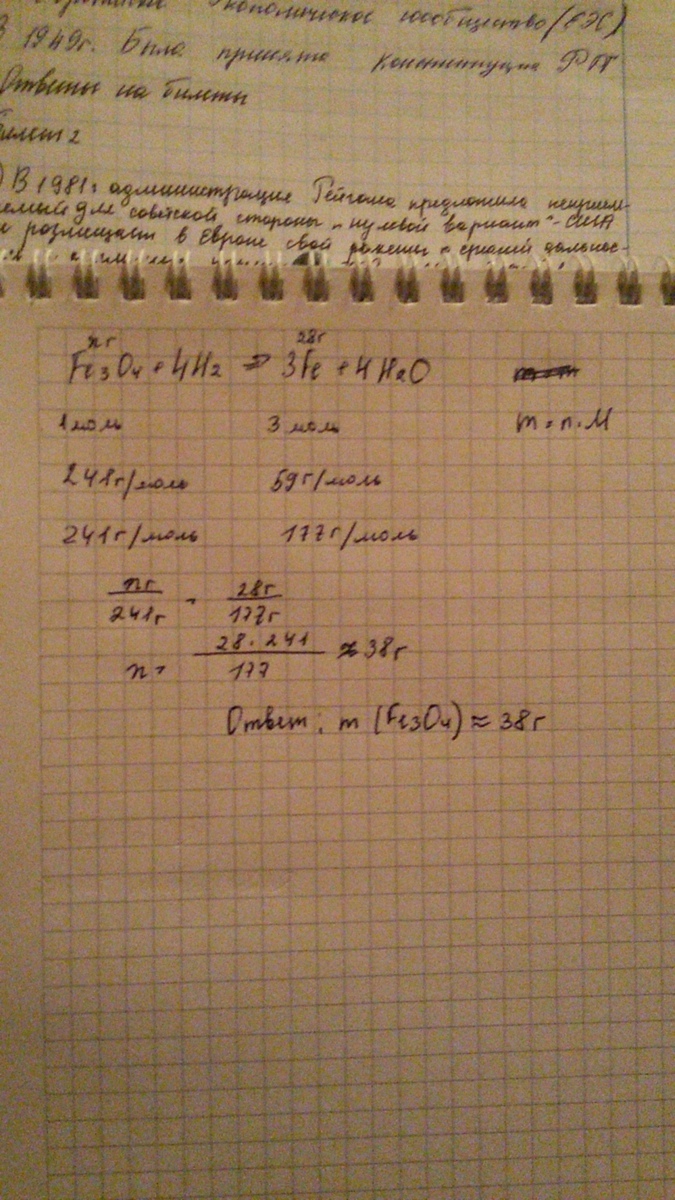 Экономическое сообщество (ЕЭС)
В 1949г. Была принята Конституция
Ответы на билеты
Билет 2
) В 1981г администрация Рейгана предложила неприем-
емый для советской стороны „нулевой вариант" - США
размещают в Европе свои ракеты средней дальнос-
xг 28г
Fe3O4 + 4H2 => 3Fe + 4H2O
1 моль 3 моль m = n · M
241г/моль 59г/моль
241г/моль 177г/моль
xг/241г = 28г/177г
x = 28 · 241/177 ≈ 38г
Ответ: m (Fe3O4) ≈ 38г